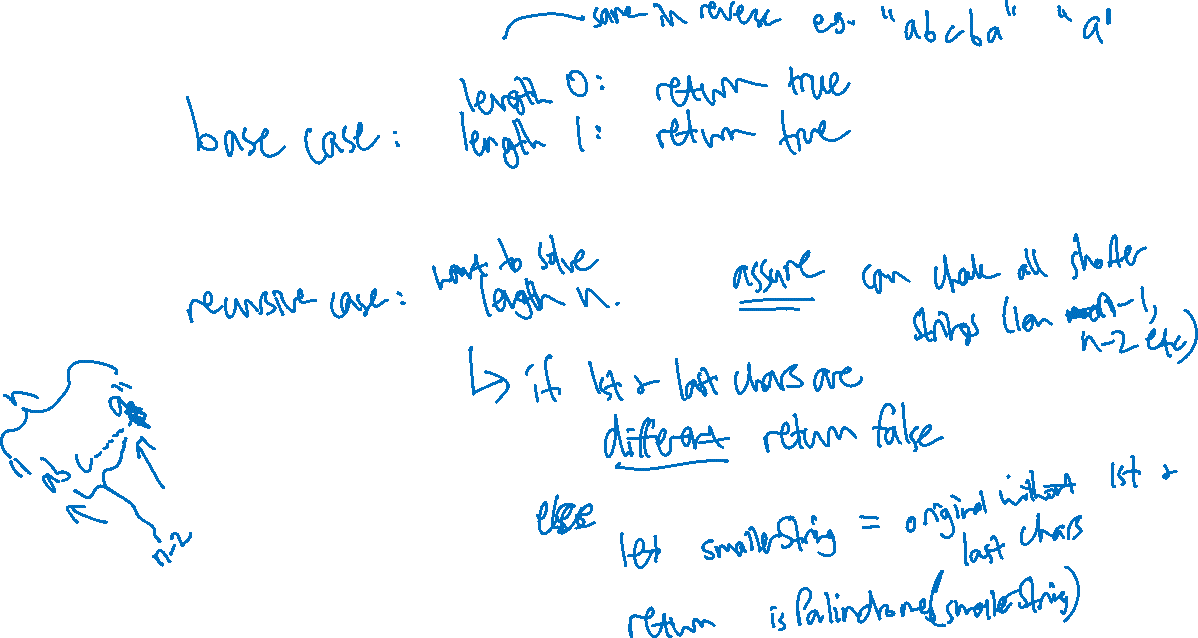 same in reverse eg. "abcba" "a"
length 0: return true
base case: length 1: return true
want to solve
recursive case: length n. assume can check all shorter
strings (len n-1,
n-2 etc)
↳ if 1st & last chars are
different return false
else
let smallerString = original without 1st &
last chars
return isPalindrome(smallerString)
"ab
a"
n-2